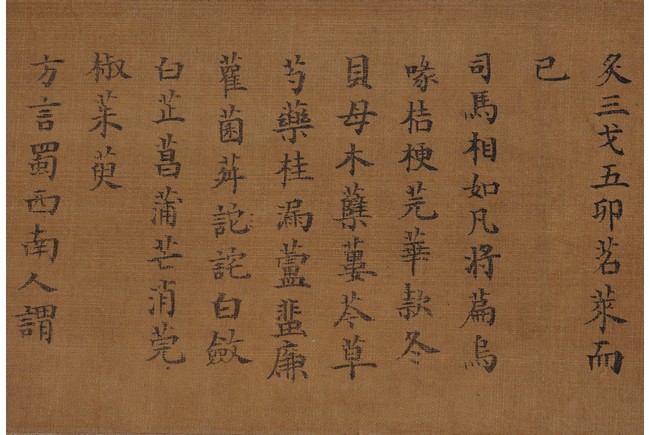 炙三戈五卯茗萊而
已
司馬相如凡將篇烏
喙桔梗芫華款冬
貝母木蘗蔞芩草
芍藥桂漏蘆蜚廉
雚菌荈詫詫白斂
白芷菖蒲芒消莞
椒茱萸
方言蜀西南人謂